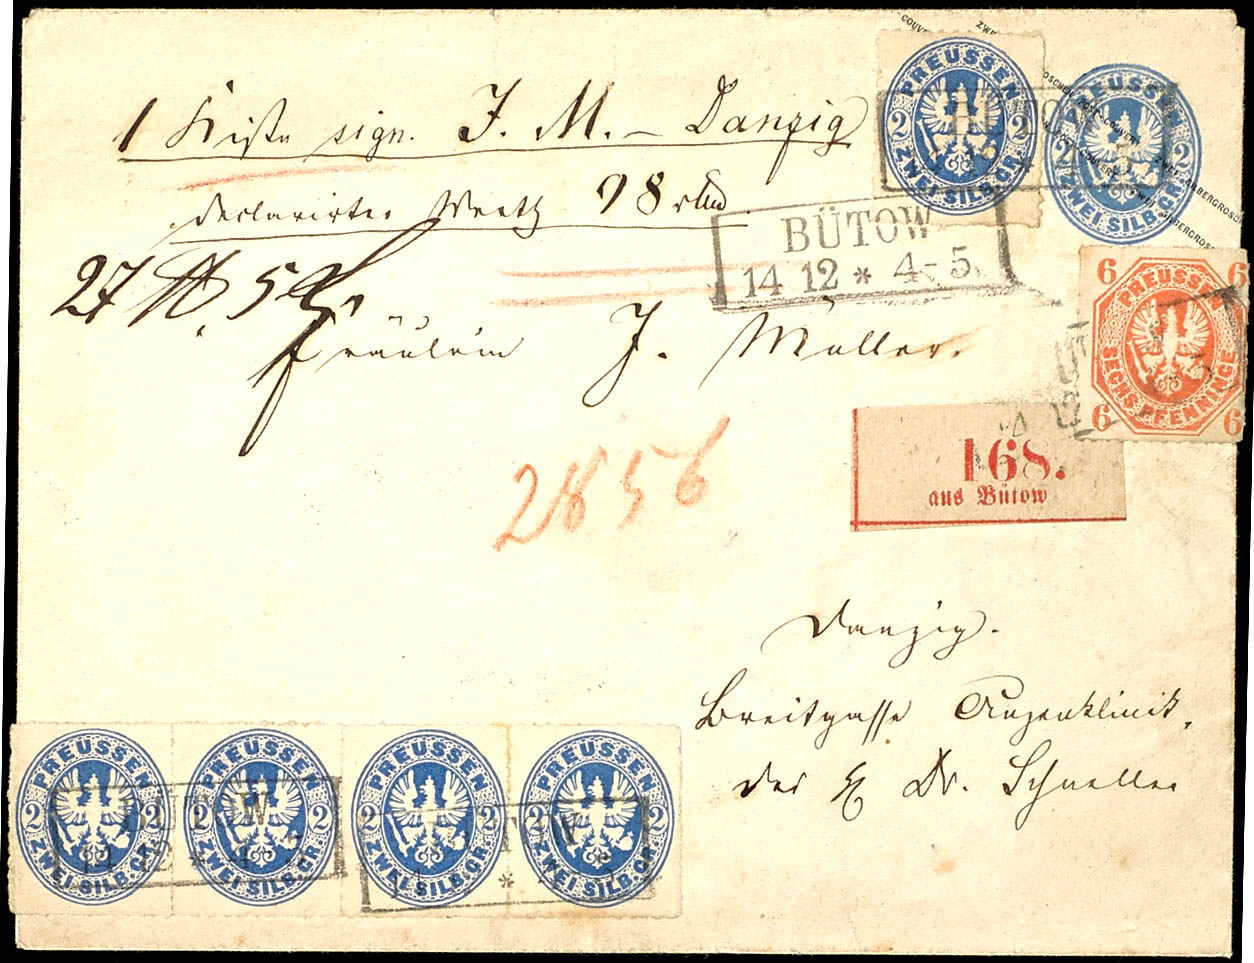 1 Kiste sign. J. M. – Danzig
declarirter Werth 98 rtl
27 ℔. 5
Fräulein J. Müller.
2856
Danzig.
Breitgasse Augenklinik,
des H Dr. Schneller
PREUSSEN
2 2
ZWEI SILB. GR.
PREUSSEN
2 2
ZWEI SILB. GR.
BÜTOW
14 12 * 4-5
6 PREUSSEN 6
6 SECHS PFENNINGE 6
168.
aus Bütow
PREUSSEN PREUSSEN PREUSSEN PREUSSEN
2 2 2 2 2 2 2 2
ZWEI SILB. GR. ZWEI SILB. GR. ZWEI SILB. GR. ZWEI SILB. GR.
BÜTOW